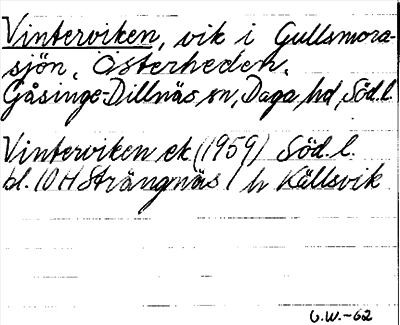 Vinterviken, vik i Gullsmora-
sjön, Österheden,
Gåsinge-Dillnäs sn, Daga hd, Söd.l.
Vinterviken ek (1959) Söd.l.
bl. 10H Strängnäs / h Källsvik
G.W.-62